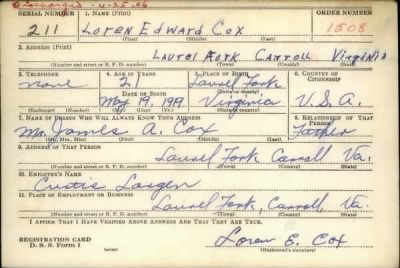 Discharged - 4-25-46
SERIAL NUMBER 1. NAME (Print) ORDER NUMBER
211 Loren Edward Cox 1508
(First) (Middle) (Last)
2. ADDRESS (Print)
Laurel Fork Carroll Virginia
(Number and street or R. F. D. number) (Town) (County) (State)
3. TELEPHONE 4. AGE IN YEARS 5. PLACE OF BIRTH 6. COUNTRY OF CITIZENSHIP
none 21 Laurel Fork
DATE OF BIRTH (Town or county)
May 19, 1919 Virginia U.S.A.
(Exchange) (Number) (Mo.) (Day) (Yr.) (State or country)
7. NAME OF PERSON WHO WILL ALWAYS KNOW YOUR ADDRESS 8. RELATIONSHIP OF THAT PERSON
Mr. James A. Cox Father
(Mr., Mrs., Miss) (First) (Middle) (Last)
9. ADDRESS OF THAT PERSON
Laurel Fork Carroll Va.
(Number and street or R. F. D. number) (Town) (County) (State)
10. EMPLOYER'S NAME
Curtis
11. PLACE OF EMPLOYMENT OR BUSINESS
Laurel Fork, Carroll, Va.
(Number and street or R. F. D. number) (Town) (County) (State)
I AFFIRM THAT I HAVE VERIFIED ABOVE ANSWERS AND THAT THEY ARE TRUE.
REGISTRATION CARD
D. S. S. FORM 1 (over) Loren E. Cox
(Registrant's signature)